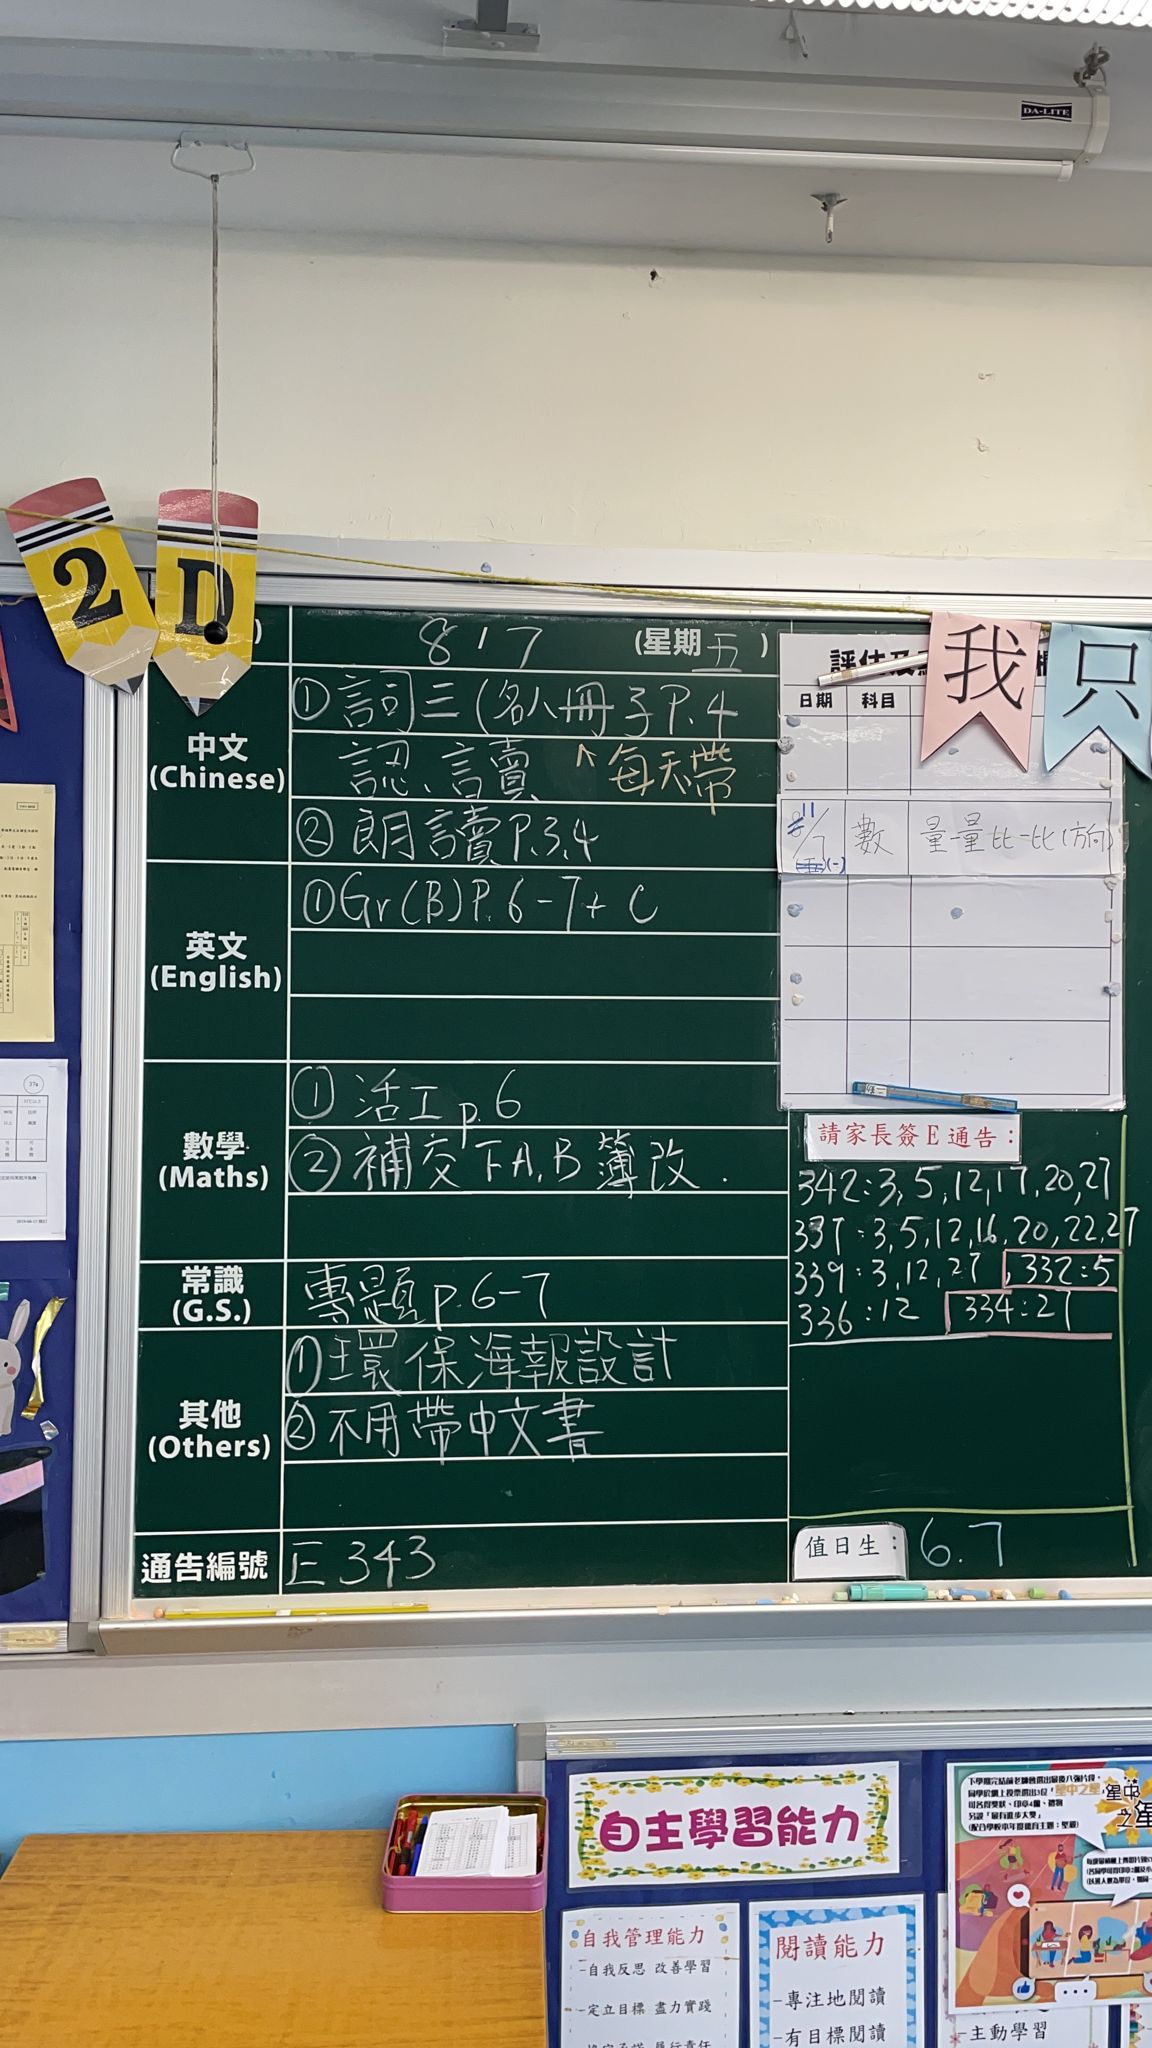 DA-LITE
2D
)
8 1 7
(星期五)
中文
(Chinese)
① 詞三(名人冊子P.4
認、讀 ^每天帶
② 朗讀P.3,4
英文
(English)
①Gr(B)P.6-7+C
數學
(Maths)
① 活工p.6
② 補交下A,B簿改.
常識
(G.S.)
專題p.6-7
其他
(Others)
①環保海報設計
②不用帶中文書
通告編號
E343
我只
評估及
日期 科目
11/7 (一) 數 量量比一比(方向)
請家長簽E通告:
342:3,5,12,17,20,27
337:3,5,12,16,20,22,27
339:3,12,27, 332:5
336:12 334:27
值日生: 6.7
自主學習能力
自我管理能力
-自我反思 改善學習
-定立目標 盡力實踐
閱讀能力
-專注地閱讀
-有目標閱讀
-主動學習